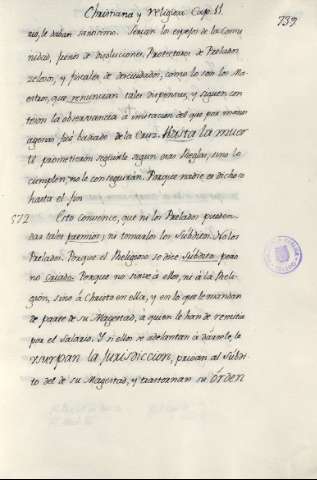 Christiana y Religiosa Cap. 11.
739
rio, le daban santisimo. Serian los espejos de la Comu
nidad, freno de disoluciones, Protectores de Prelados
zelosos, y fiscales de descuidados, como lo son los Ma
estros, que renuncian tales dispensas, y siguen con
teson la observancia à imitacion del que por manos
agenas fué baxado de la Cruz. Hasta la muer
te prometieron seguirle segun sus Reglas, sino lo
cumplen, no le conseguirán. Porque nadie es dichoso
hasta el fin
572 Esto convence, que ni los Prelados pueden
dar tales premios; ni tomarlos los Subditos. No los
Prelados. Porque el Religioso se dice Subdito, pero
no Criado. Porque no sirve à ellos, ni à la Reli
gion, sino à Christo en ella, y en lo que le mandan
de parte de su Magestad, a quien le han de remitir
por el salario. Y si ellos se adelantan à darsele, le
usurpan la Jurisdiccion, privan al Subdi
to del de su Magestad, y trastornan su órden